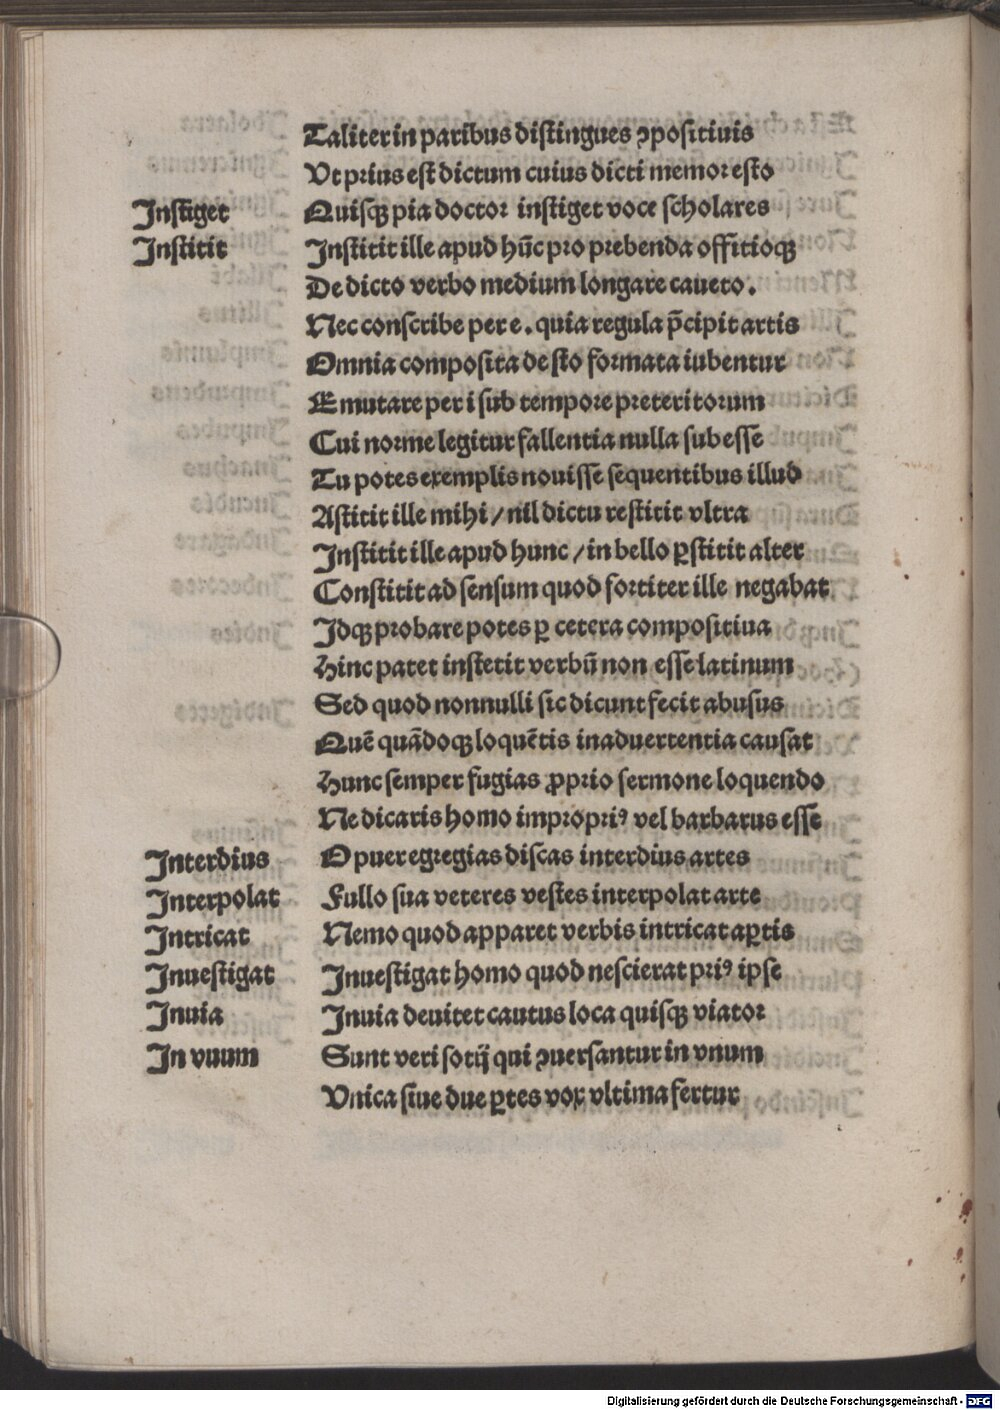 Taliter in paribus distingues ꝯpositiuis
Vt prius est dictum cuius dicti memor esto
Instiget Quisqȝ pia doctor instiget voce scholares
Institit Institit ille apud hūc pro prebenda offitioqȝ
De dicto verbo medium longare caueto.
Nec conscribe per e. quia regula p̄cipit artis
Omnia composita de sto formata iubentur
E mutare per i sub tempore preteritorum
Cui norme legitur fallentia nulla subesse
Tu potes exemplis nouisse sequentibus illud
Astitit ille mihi / nil dictu restitit vltra
Institit ille apud hunc / in bello ꝑstitit alter
Constitit ad sensum quod fortiter ille negabat
Idqȝ probare potes ꝑ cetera compositiua
Hinc patet instetit verbū non esse latinum
Sed quod nonnulli sic dicunt fecit abusus
Quē quādoqȝ loquētis inaduertentia causat
Hunc semper fugias ꝓprio sermone loquendo
Ne dicaris homo impropriꝰ vel barbarus esse
Interdius O puer egregias discas interdius artes
Interpolat Fullo sua veteres vestes interpolat arte
Intricat Nemo quod apparet verbis intricat aꝑtis
Inuestigat Inuestigat homo quod nescierat priꝰ ipse
Inuia Inuia deuitet cautus loca quisqȝ viator
In vnum Sunt veri sotij qui ꝯuersantur in vnum
Vnica siue due ꝑtes vox vltima fertur
Digitalisierung gefördert durch die Deutsche Forschungsgemeinschaft - DFG